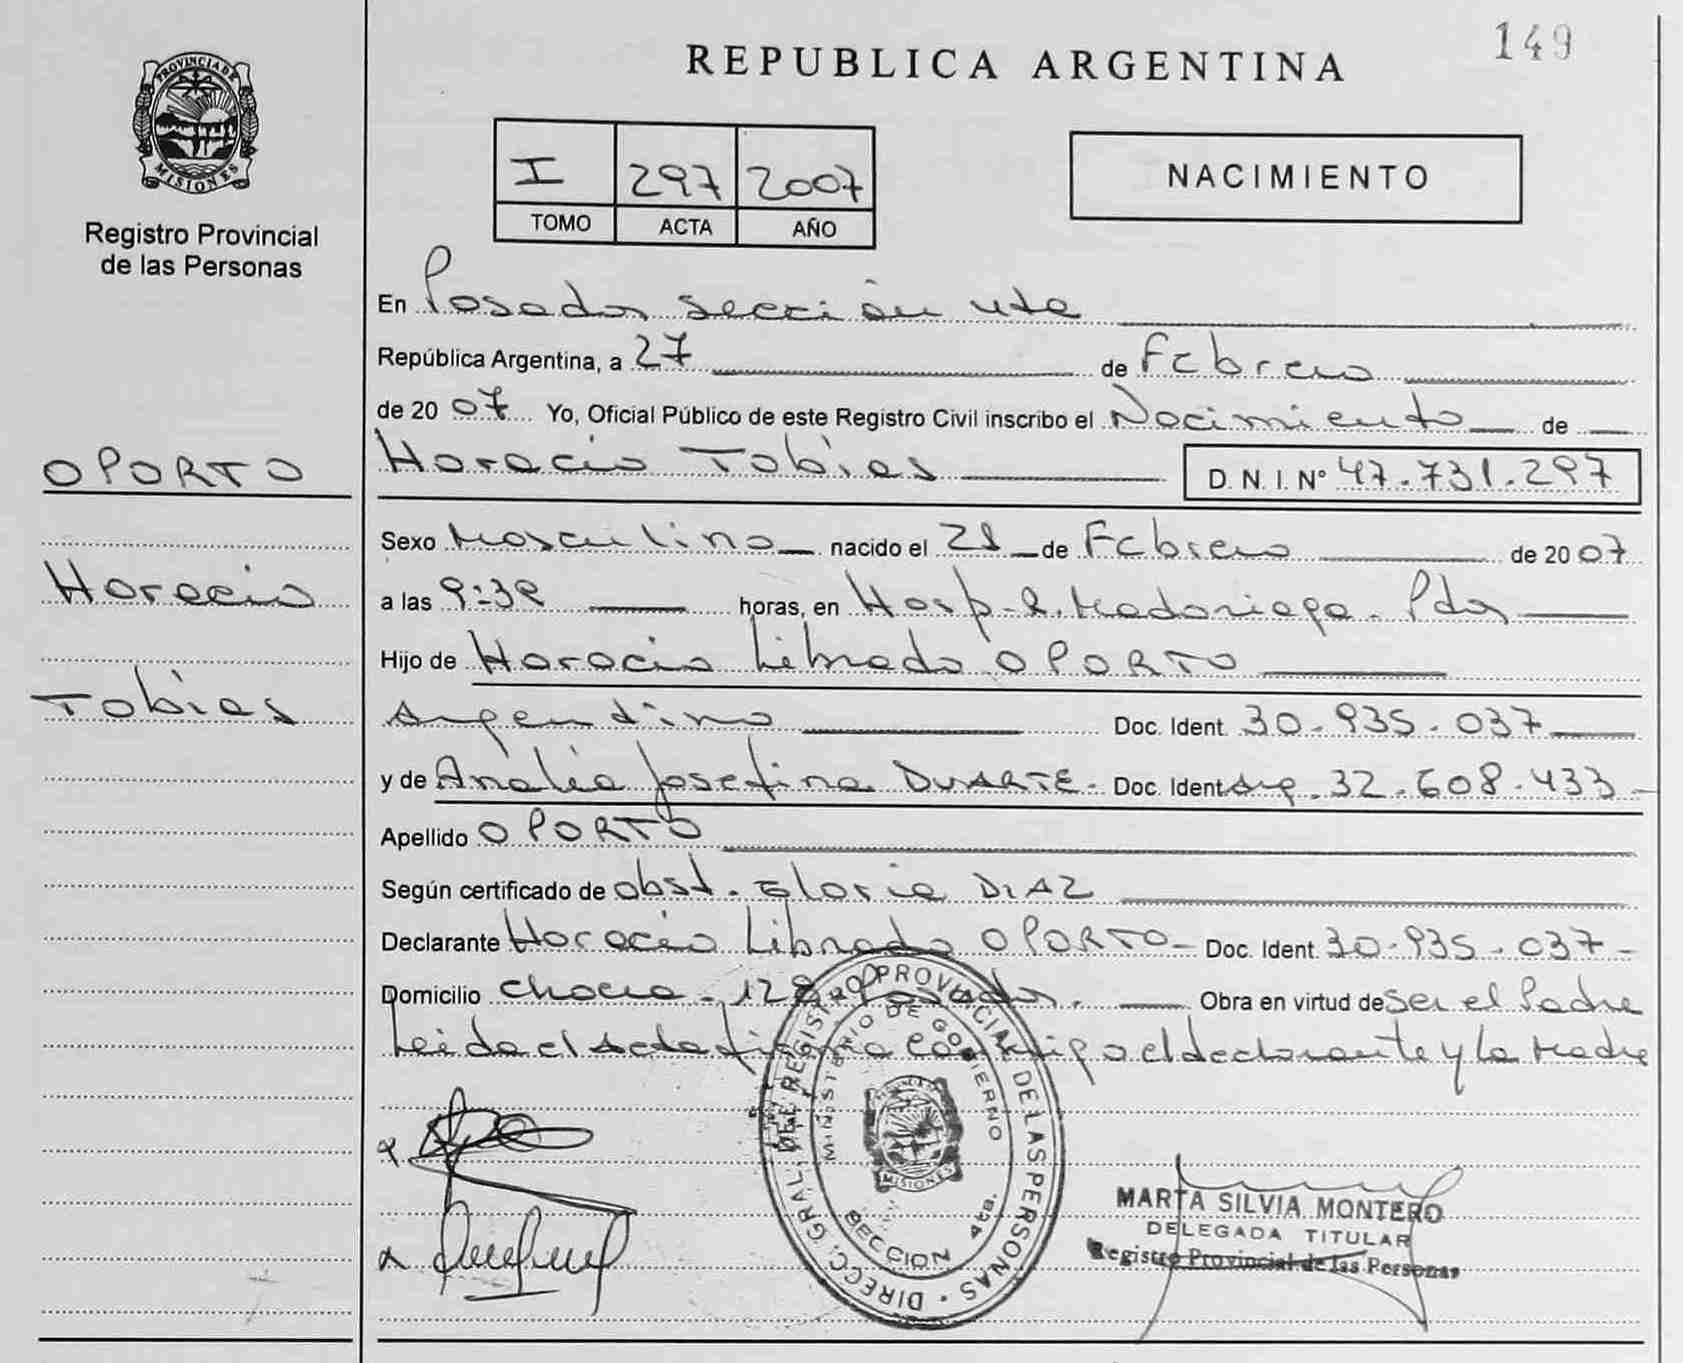 149
REPUBLICA ARGENTINA
PROVINCIA DE
MISIONES
Registro Provincial
de las Personas
I 297 2007
TOMO ACTA AÑO
NACIMIENTO
En Posadas sección 4ta
República Argentina, a 27 de Febrero
de 2007 Yo, Oficial Público de este Registro Civil inscribo el Nacimiento de
Horacio Tobias D. N. I. N° 47.731.297
OPORTO
Horacio
Tobias
Sexo Masculino nacido el 21 de Febrero de 2007
a las 9:39 horas, en Hosp. R. Madariaga - Pdas
Hijo de Horacio Librado OPORTO
Argentino Doc. Ident. 30-935-037
y de Analia Josefina DUARTE - Doc. Ident Arg. 32.608.433
Apellido OPORTO
Según certificado de obst. Gloria DIAZ
Declarante Horacio Librado OPORTO - Doc. Ident. 30-935-037
Domicilio chacra - 128 Posadas. Obra en virtud de ser el Padre
Leida el Acta firma conmigo el declarante y la Madre
DIRECC. GRAL. DE REGISTRO PROVINCIAL DE LAS PERSONAS
MINISTERIO DE GOBIERNO
MISIONES
SECCION 4ta.
MARTA SILVIA MONTERO
DELEGADA TITULAR
Registro Provincial de las Personas